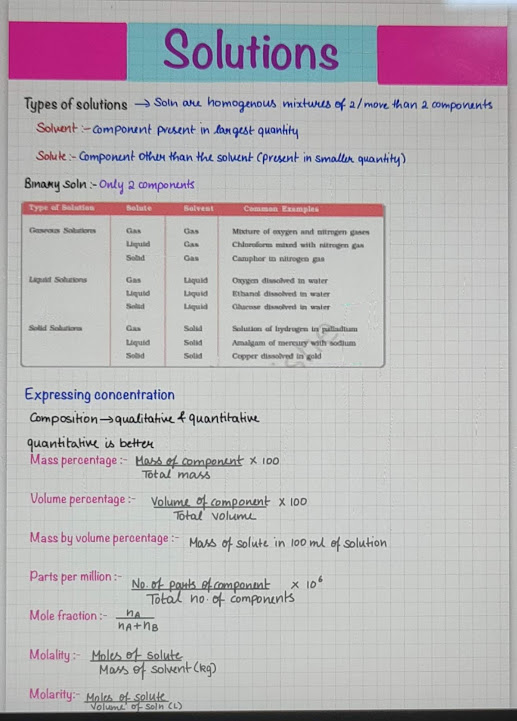 Solutions
Types of solutions → Soln are homogenous mixtures of 2/more than 2 components
Solvent :- Component present in largest quantity
Solute :- Component other than the solvent (present in smaller quantity)
Binary Soln :- Only 2 components
Type of Solution Solute Solvent Common Examples
Gaseous Solutions Gas Gas Mixture of oxygen and nitrogen gases
Liquid Gas Chloroform mixed with nitrogen gas
Solid Gas Camphor in nitrogen gas
Liquid Solutions Gas Liquid Oxygen dissolved in water
Liquid Liquid Ethanol dissolved in water
Solid Liquid Glucose dissolved in water
Solid Solutions Gas Solid Solution of hydrogen in palladium
Liquid Solid Amalgam of mercury with sodium
Solid Solid Copper dissolved in gold
Expressing concentration
Composition → qualitative & quantitative
quantitative is better
Mass percentage :- Mass of component × 100
Total mass
Volume percentage :- Volume of component × 100
Total volume
Mass by volume percentage :- Mass of solute in 100 ml of solution
Parts per million :- No. of parts of component × 10⁶
Total no. of components
Mole fraction :- nA
nA + nB
Molality :- Moles of solute
Mass of solvent (kg)
Molarity :- Moles of solute
Volume of soln (L)